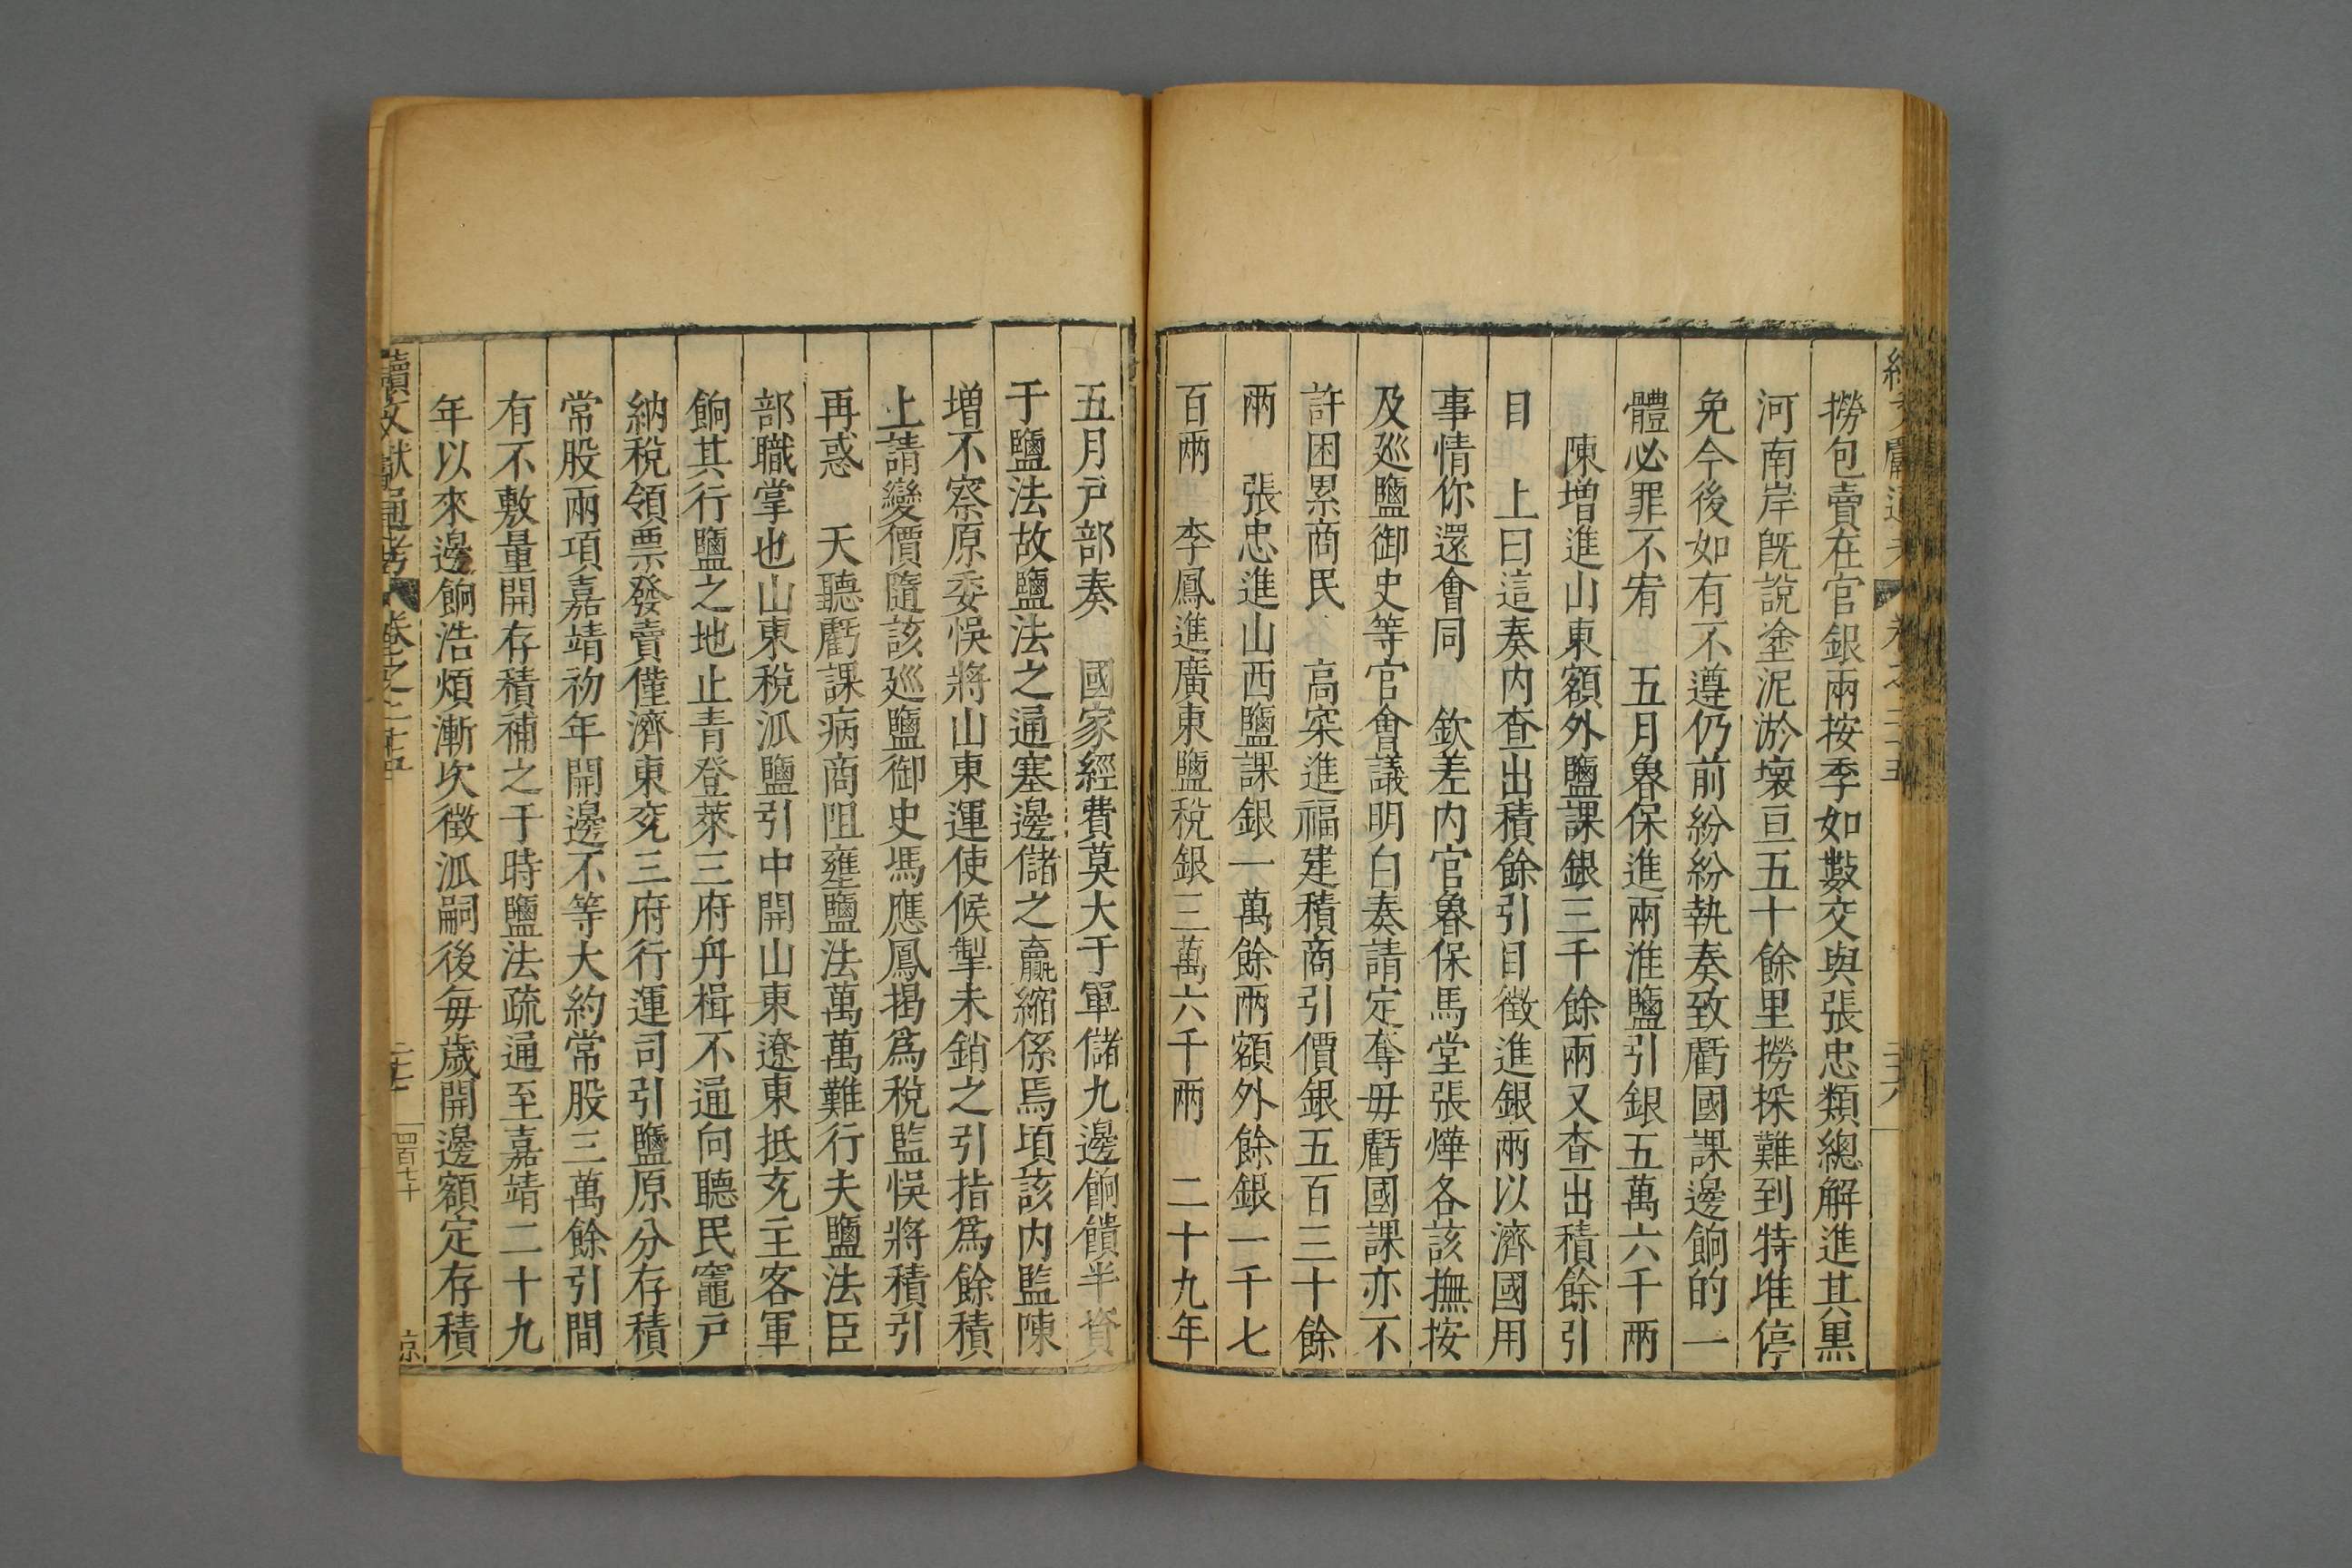 撈包賣在官銀兩按季如數交與張忠類總解進其黒
河南岸旣說塗泥淤壞亘五十餘里撈採難到特准停
免今後如有不遵仍前紛紛執奏致虧國課邊餉的一
體必罪不宥　五月魯保進兩淮鹽引銀五萬六千兩
陳增進山東額外鹽課銀三千餘兩又查出積餘引
目　上曰這奏内查出積餘引目徴進銀兩以濟國用
事情你還會同　欽差内官魯保馬堂張燁各該撫按
及廵鹽御史等官會議明白奏請定奪毋虧國課亦不
許困累商民　高寀進福建積商引價銀五百三十餘
兩　張忠進山西鹽課銀一萬餘兩額外餘銀一千七
百兩　李鳳進廣東鹽稅銀三萬六千兩　二十九年
五月戸部奏　國家經費莫大于軍儲九邊餉饋半資
于鹽法故鹽法之通塞邊儲之贏縮係焉頃該内監陳
増不察原委悞將山東運使候掣未銷之引指爲餘積
上請變價隨該廵鹽御史馬應鳳揭爲稅監悞將積引
再惑　天聽虧課病商阻壅鹽法萬萬難行夫鹽法臣
部職掌也山東稅派鹽引中開山東遼東抵充主客軍
餉其行鹽之地止青登萊三府舟楫不通向聽民竈戸
納稅領票發賣僅濟東兗三府行運司引鹽原分存積
常股兩項嘉靖初年開邊不等大約常股三萬餘引間
有不敷量開存積補之于時鹽法疏通至嘉靖二十九
年以來邊餉浩煩漸次徴派嗣後毎歲開邊額定存積
續文獻通考　卷之二十五　二十七　四百七十